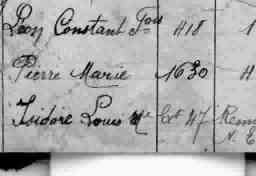 Léon Constant Fois 418 1
Pierre Marie 1630 H
Isidore Louis Me Cot 47 Rem
N. E